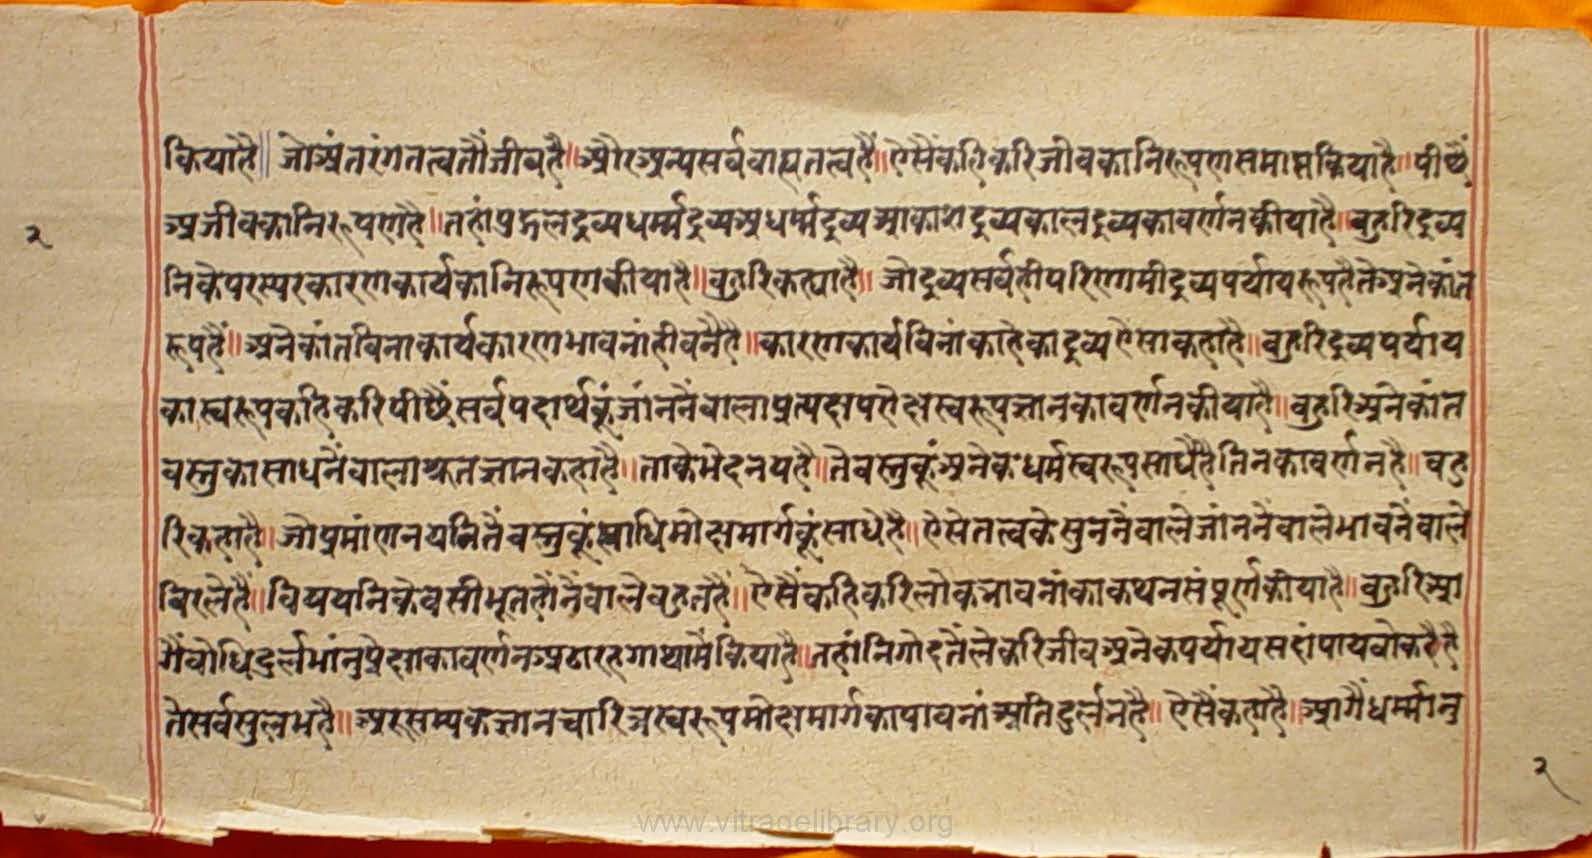 कियाहै॥ जोअंतरंगतत्वतौंजीवहै॥औरअन्यसर्वबाह्यतत्वहैं॥ऐसैंकहिकरिजीवकानिरूपणसमाप्तकियाहै॥पीछैं
अजीवकानिरूपणहै॥तहांपुद्गलद्रव्यधर्म्मद्रव्यअधर्म्मद्रव्यआकाशद्रव्यकालद्रव्यकावर्णनकीयाहै॥बहुरिद्रव्य
२
निकेपरस्परकारणकार्यकानिरूपणकीयाहै॥बहुरिकह्याहै॥ जोद्रव्यसर्वहीपरिणामीद्रव्यपर्यायरूपहैतेअनेकांत
रूपहैं॥अनेकांतविनाकार्यकारणभावनांहीवनैहै॥कारणकार्यविनांकाहेकाद्रव्यऐसाकह्याहै॥बहुरिद्रव्यपर्याय
कास्वरूपकहिकरिपीछैंसर्वपदार्थकूंजांननैंवालाप्रत्यक्षपरोक्षस्वरूपज्ञानकावर्णनकीयाहै॥बहुरिअनेकांत
वस्तुकासाधनैंवालाश्रुतज्ञानकह्याहै॥ताकेभेदनयहै॥तेवस्तुकूंअनेकधर्मस्वरूपसाधैहैतिनकावर्णनहै॥बहु
रिकह्याहै॥जोप्रमांणनयनितैंवस्तुकूंसाधिमोक्षमार्गकूंसाधेहै॥ऐसेतत्वकेसुननैंवालेजांननैंवालेभावनैंवाले
विरलेहैं॥विषयनिकेवसीभूतहोंनैंवालेबहुतहैं॥ऐसैंकहिकरिलोकभावनांकाकथनसंपूर्णकीयाहै॥बहुरिआ
गैंबोधिदुर्लभांनुप्रेक्षाकावर्णनअठारहगाथामैंकियाहै॥तहांनिगोदतैंलेकरिजीवअनेकपर्यायसदांपायवोकरैहै
तेसर्वसुलभहै॥अरसम्यकज्ञानचारित्रस्वरूपमोक्षमार्गकापावनांअतिदुर्लभहै॥ ऐसैंकह्याहै॥आगैंधर्म्मानु
२
www.vitragelibrary.org